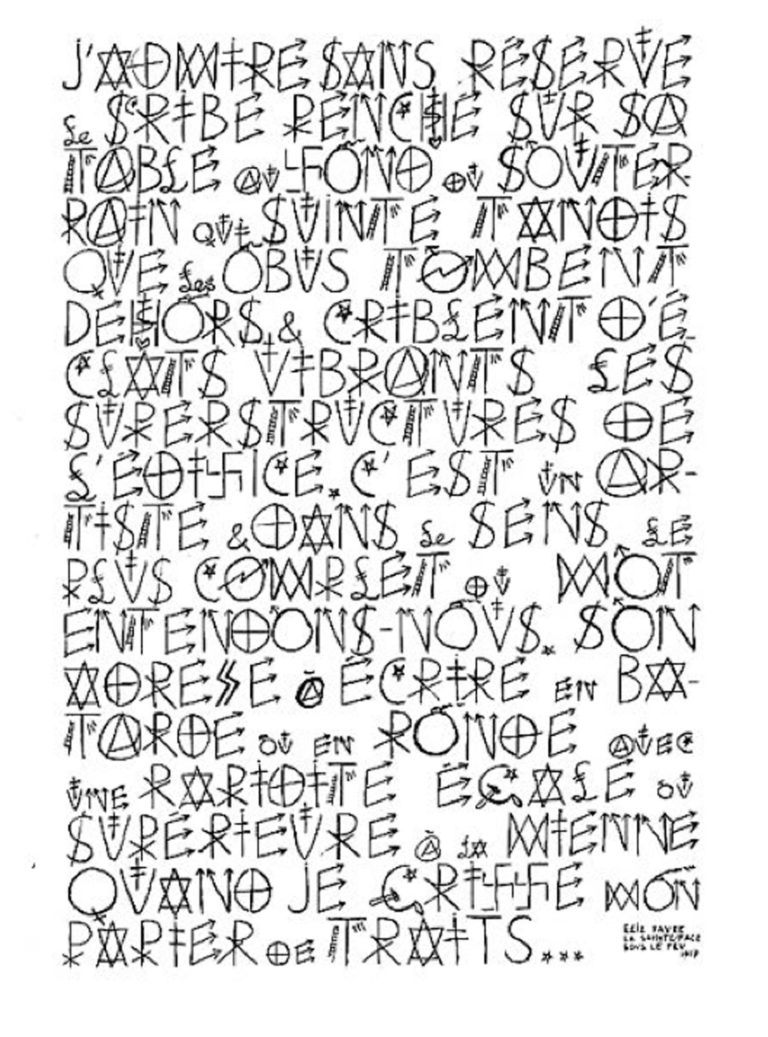 J'ADMIRE SANS RÉSERVE
le SCRIBE PENCHÉ SUR SA
TABLE AU FOND DU SOUTER-
RAIN QUI SUINTE TANDIS
QUE les OBUS TOMBENT
DEHORS & CRIBLENT D'É-
CLATS VIBRANTS LES
SUPERSTRUCTURES DE
L'ÉDIFICE. C'EST UN AR-
TISTE & DANS le SENS LE
PLUS COMPLET DU MOT
ENTENDONS-NOUS. SON
ADRESSE À ÉCRIRE EN BA-
TARDE OU EN RONDE AVEC
UNE RAPIDITE EGALE OU
SUPÉRIEURE À LA MIENNE
QUAND JE GRIFFE MON
PAPIER DE TRAITS...
ELIE FAURE
LA SAINTE FACE
SOUS LE FEU